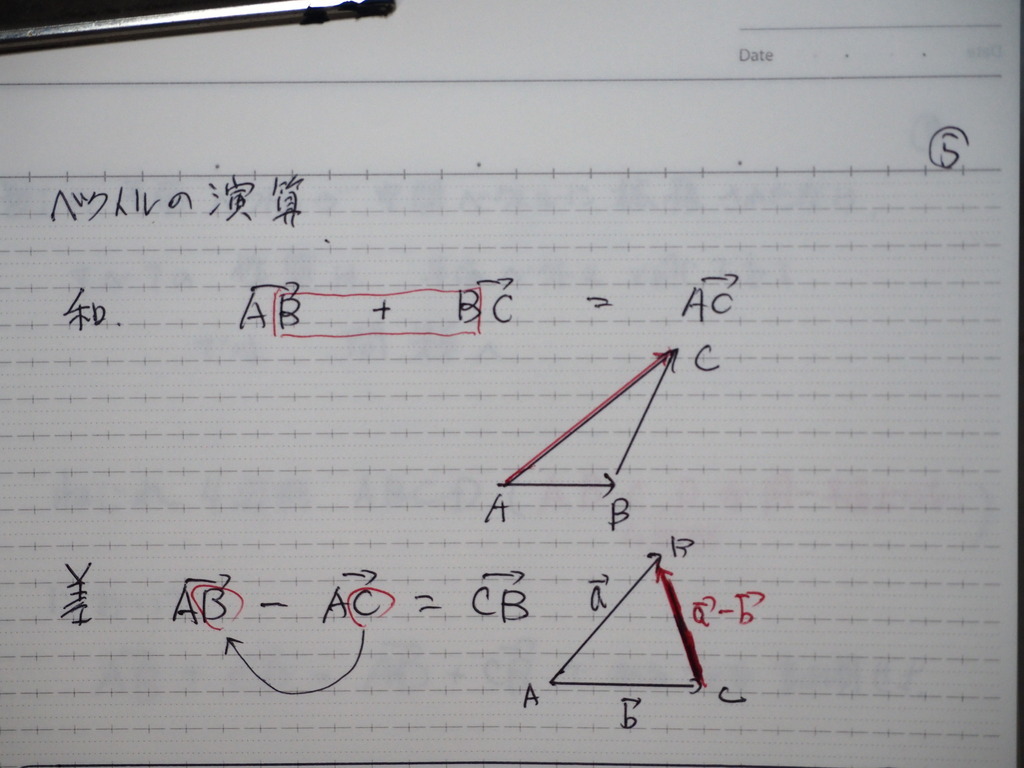 Date
⑤
ベクトルの演算
和. AB→ + BC→ = AC→
C
A
B
差 AB→ - AC→ = CB→
B
a→
a→-b→
A
C
b→